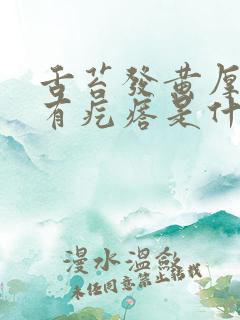 舌苔發黃厚
有疙瘩是什
漫水溫歙
未任同意禁止轉載